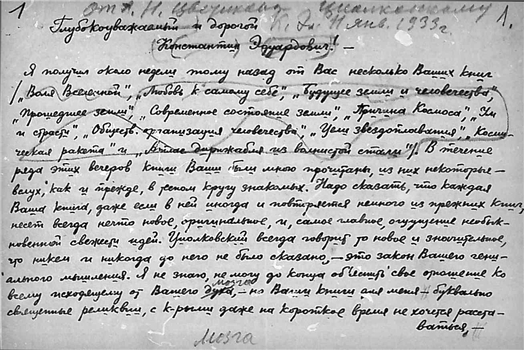 1 от А. Н. Цветкова Циолковскому 1.
К. Э. 11 янв. 1933 г.
Глубокоуважаемый и дорогой
Константин Эдуардович! —
Я получил около недели тому назад от Вас несколько Ваших книг
("Воля Вселенной", "Любовь к самому себе", "Будущее земли и человечества",
"Прошедшее земли", "Современное состояние земли", "Причина Космоса", "Ум
и страсти", "Обществ. организация человечества", "Цели звездоплавания", "Косми-
ческая ракета" и "Атлас дирижабля из волнистой стали"). В течение
ряда этих вечеров книги Ваши были мною прочитаны, из них некоторые —
вслух, как и прежде, в тесном кругу знакомых. Надо сказать, что каждая
Ваша книга, даже если в ней иногда и повторяется немного из прежних книг,
несет всегда нечто новое, оригинальное, и, самое главное, ощущение необык-
новенной свежести идей. Циолковский всегда говорит то новое и значительное,
что никем и никогда до него не было сказано, — это закон Вашего гени-
ального мышления. Я не знаю, не могу до конца объяснить свое отношение ко
мозга
всему исходящему от Вашего духа, — но Ваши книги для меня — буквально
священные реликвии, с к-рыми даже на короткое время не хочется расста-
ваться,
мозга